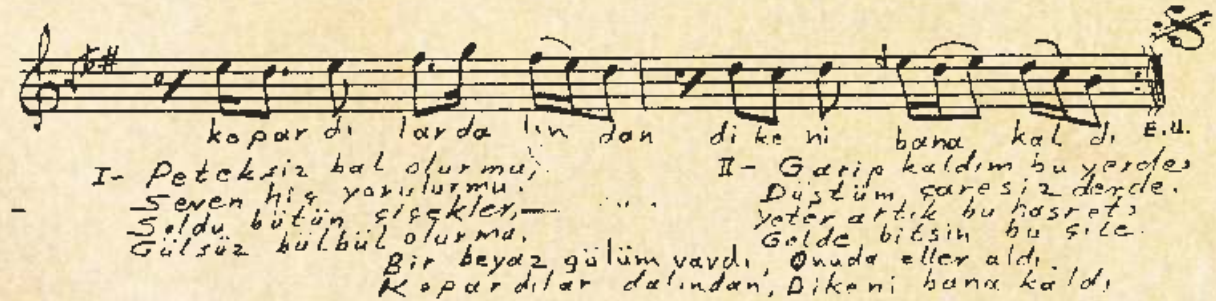 kopardı larda lın dan di ke ni bana kal dı E.U.
I- Peteksiz bal olurmu,
Seven hiç yorulurmu.
Soldu bütün çiçekler,
Gülsüz bülbül olurmu.
II- Garip kaldım bu yerde,
Düştüm çaresiz derde.
Yeter artık bu hasret,
Gelde bitsin bu çile.
Bir beyaz gülüm vardı, Onuda eller aldı.
Kopardılar dalından, Dikeni bana kaldı